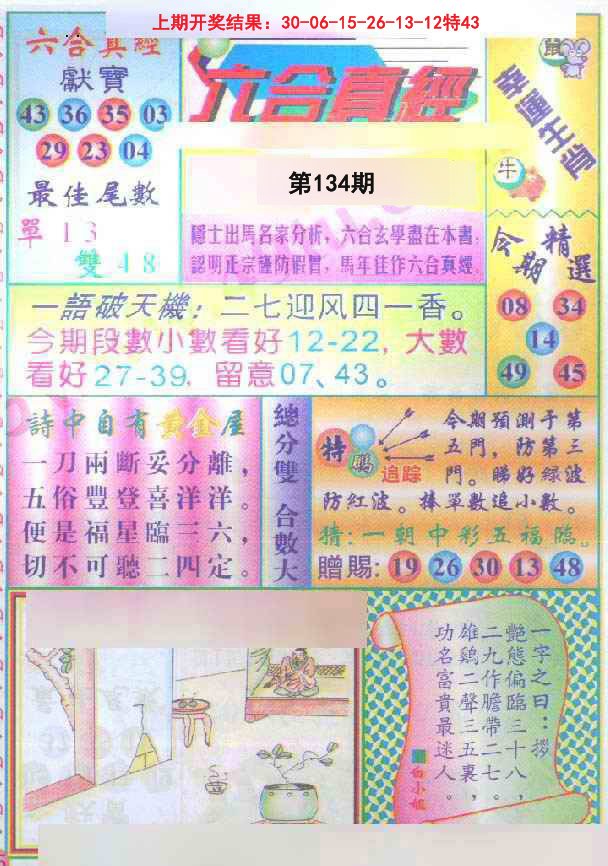 上期开奖结果：30-06-15-26-13-12特43
六合真經
獻寶
43 36 35 03
29 23 04
最佳尾數
單 1 3
雙 4 8
六合真經
第134期
隱士出馬名家分析，六合玄學盡在本書；
認明正宗謹防假冒，馬年佳作六合真經。
鼠
幸運生肖
牛
今期精選
08 34
14
49 45
一語破天機：二七迎风四一香。
今期段數小數看好12-22，大數
看好27-39，留意07、43。
詩中自有黃金屋
一刀兩斷妥分離，
五俗豐登喜洋洋。
便是福星臨三六，
切不可聽二四定。
總分雙 合數大
特碼
追踪
今期預測于第
五門，防第三
門。睇好綠波
防紅波。捧單數追小數。
猜:一朝中彩五福臨。
贈賜: 19 26 30 13 48
一字之曰：拶
艷態偏臨三十八，
二九作膽帶二七。
雄鷄二聲三五裏，
功名富貴最迷人。
白小姐